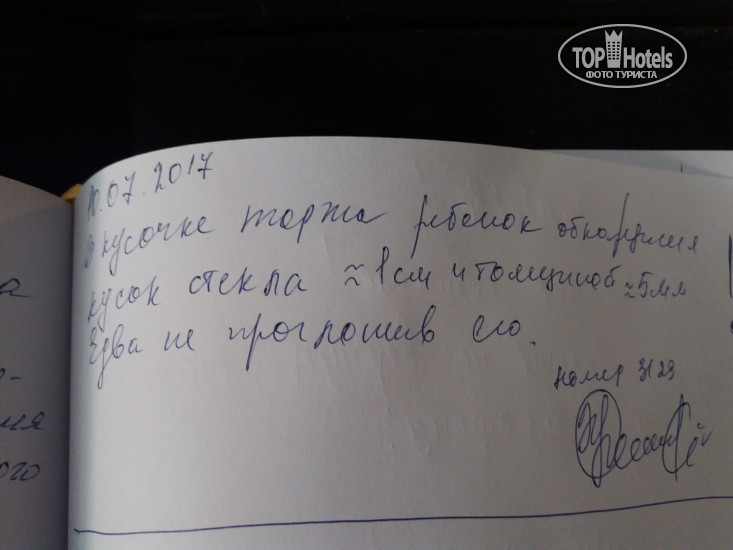 TOP Hotels
ФОТО ТУРИСТА
10.07.2017
В кусочке торта ребенок обнаружил
кусок стекла ≈ 1 см и толщиной ≈ 5 мм
Едва не проглотив его.
номер 3123
а
-
ия
ого